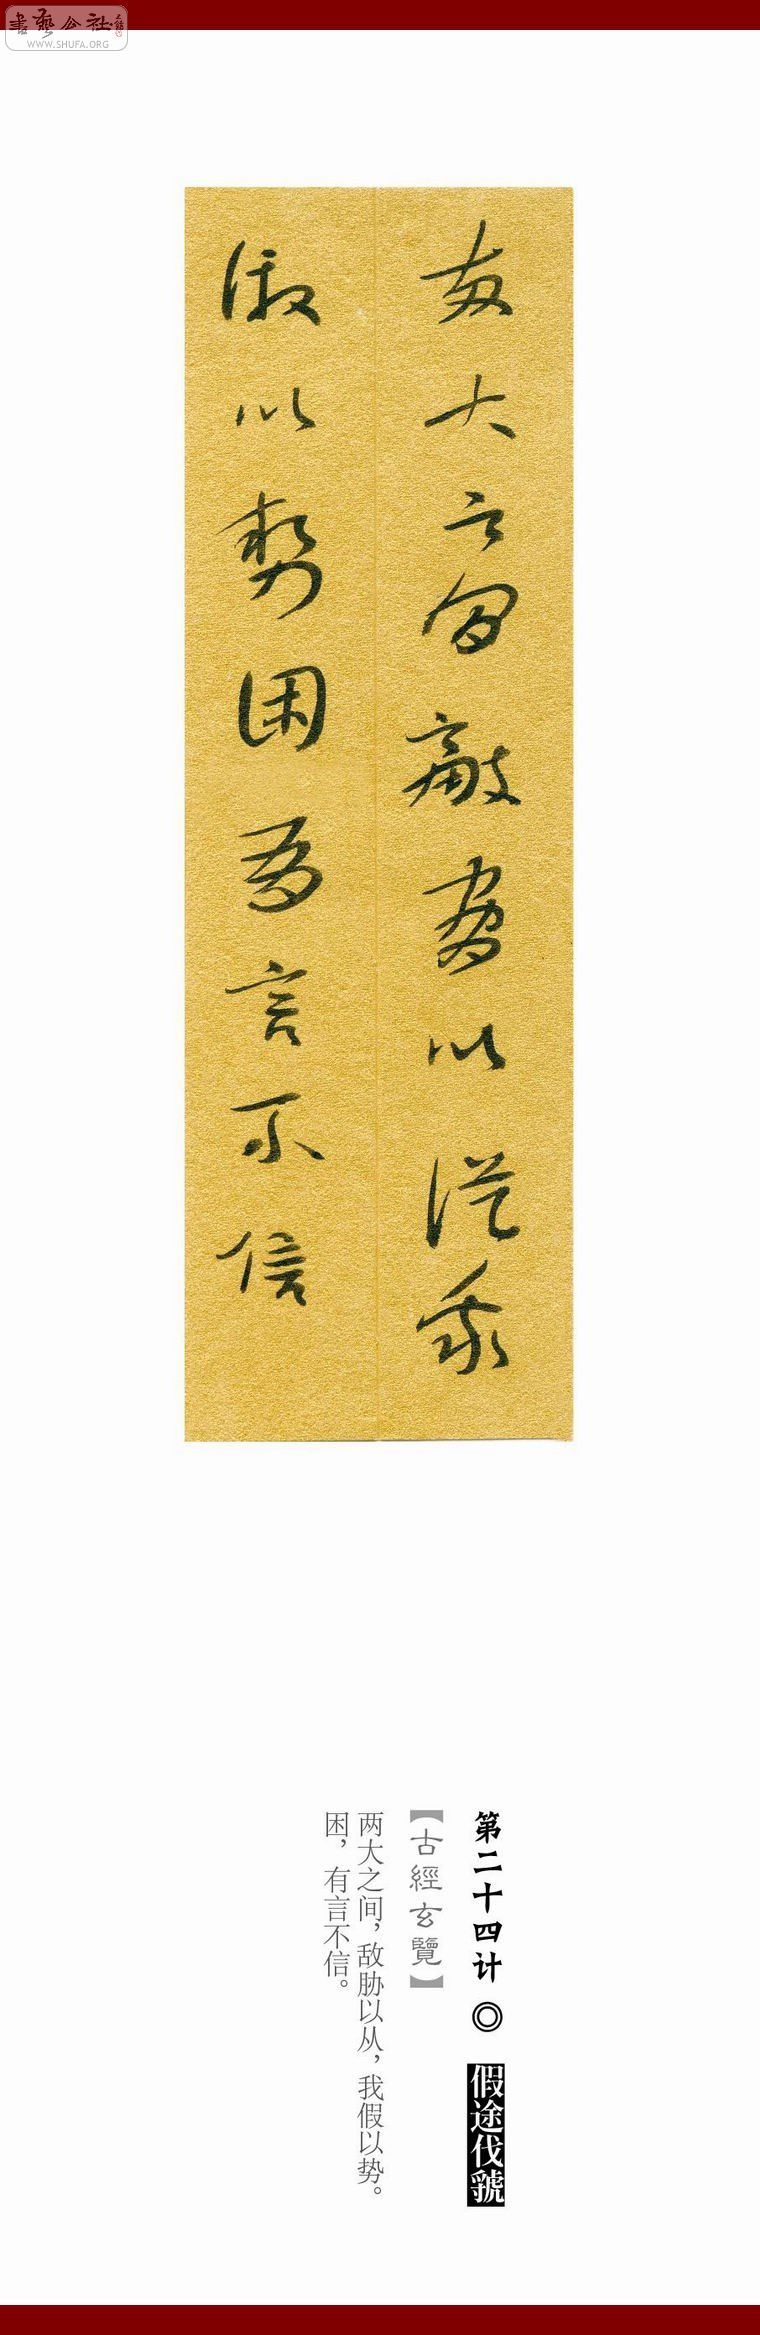 書藝公社
WWW.SHUFA.ORG
两大之间敌胁以从我
假以势困有言不信
第二十四计 ◎ 假途伐虢
【古經玄覽】
两大之间，敌胁以从，我假以势。
困，有言不信。